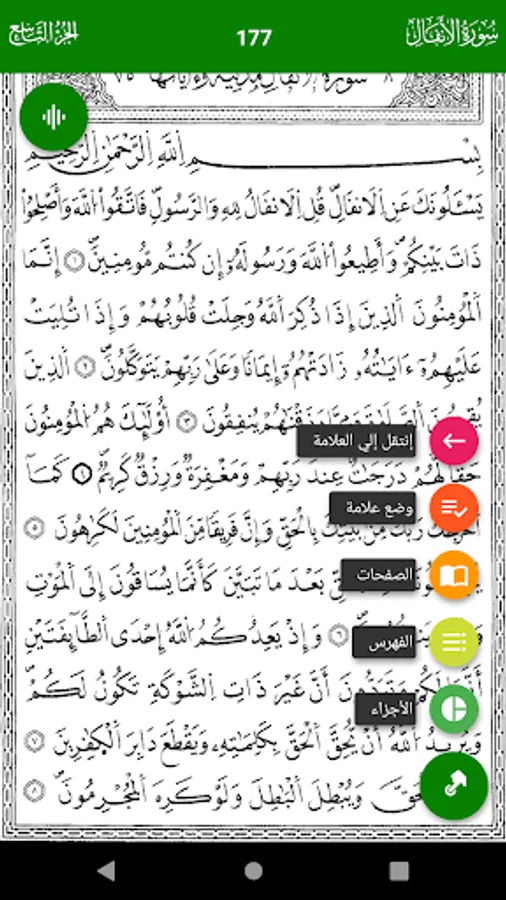 سُورَةُ الأَنفَال
177
الجُزءُ التَّاسِع
سورة الأنفال مدنية وءاياتها ٧٥
بِسْمِ اِللَّهِ اِلرَّحْمَٰنِ اِلرَّحِيمِ
يَسْـَٔلُونَكَ عَنِ اِلَانفَالِ قُلِ اِلَانفَالُ لِلهِ وَالرَّسُولِ فَاتَّقُواْ اُللَّهَ وَأَصْلِحُواْ
ذَاتَ بَيْنِكُمْ وَأَطِيعُواْ اُللَّهَ وَرَسُولَهُۥٓ إِن كُنتُم مُّومِنِينَ ١ إِنَّمَا
اَلْمُومِنُونَ اَلذِينَ إِذَا ذُكِرَ اَللَّهُ وَجِلَتْ قُلُوبُهُمْ وَإِذَا تُلِيَتْ
عَلَيْهِمُۥٓ ءَايَٰتُهُۥ زَادَتْهُمُۥٓ إِيمَٰنًا وَعَلَىٰ رَبِّهِمْ يَتَوَكَّلُونَ ٢ اَلذِينَ
يُقِيمُونَ اَلصَّلَوٰةَ وَمِمَّا رَزَقْنَٰهُمْ يُنفِقُونَ ٣ أُوْلَٰٓئِكَ هُمُ اُلْمُومِنُونَ
حَقًّا لَّهُمْ دَرَجَٰتٌ عِندَ رَبِّهِمْ وَمَغْفِرَةٌ وَرِزْقٌ كَرِيمٌ ٤ كَمَآ
أَخْرَجَكَ رَبُّكَ مِنۢ بَيْتِكَ بِالْحَقِّ وَإِنَّ فَرِيقًا مِّنَ اَلْمُومِنِينَ لَكَٰرِهُونَ ٥
بَعْدَ مَا تَبَيَّنَ كَأَنَّمَا يُسَاقُونَ إِلَى اَلْمَوْتِ
٦ وَإِذْ يَعِدُكُمُ اُللَّهُ إِحْدَى اَلطَّآئِفَتَيْنِ
أَنَّهَا لَكُمْ وَتَوَدُّونَ أَنَّ غَيْرَ ذَاتِ اِلشَّوْكَةِ تَكُونُ لَكُمْ
وَيُرِيدُ اُللَّهُ أَنْ يُّحِقَّ اَلْحَقَّ بِكَلِمَٰتِهِۦ وَيَقْطَعَ دَابِرَ اَلْكٰفِرِينَ ٧
وَيُبْطِلَ اَلْبَٰطِلَ وَلَوْ كَرِهَ اَلْمُجْرِمُونَ ٨
إنتقل إلي العلامة
وضع علامة
الصفحات
الفهرس
الأجزاء